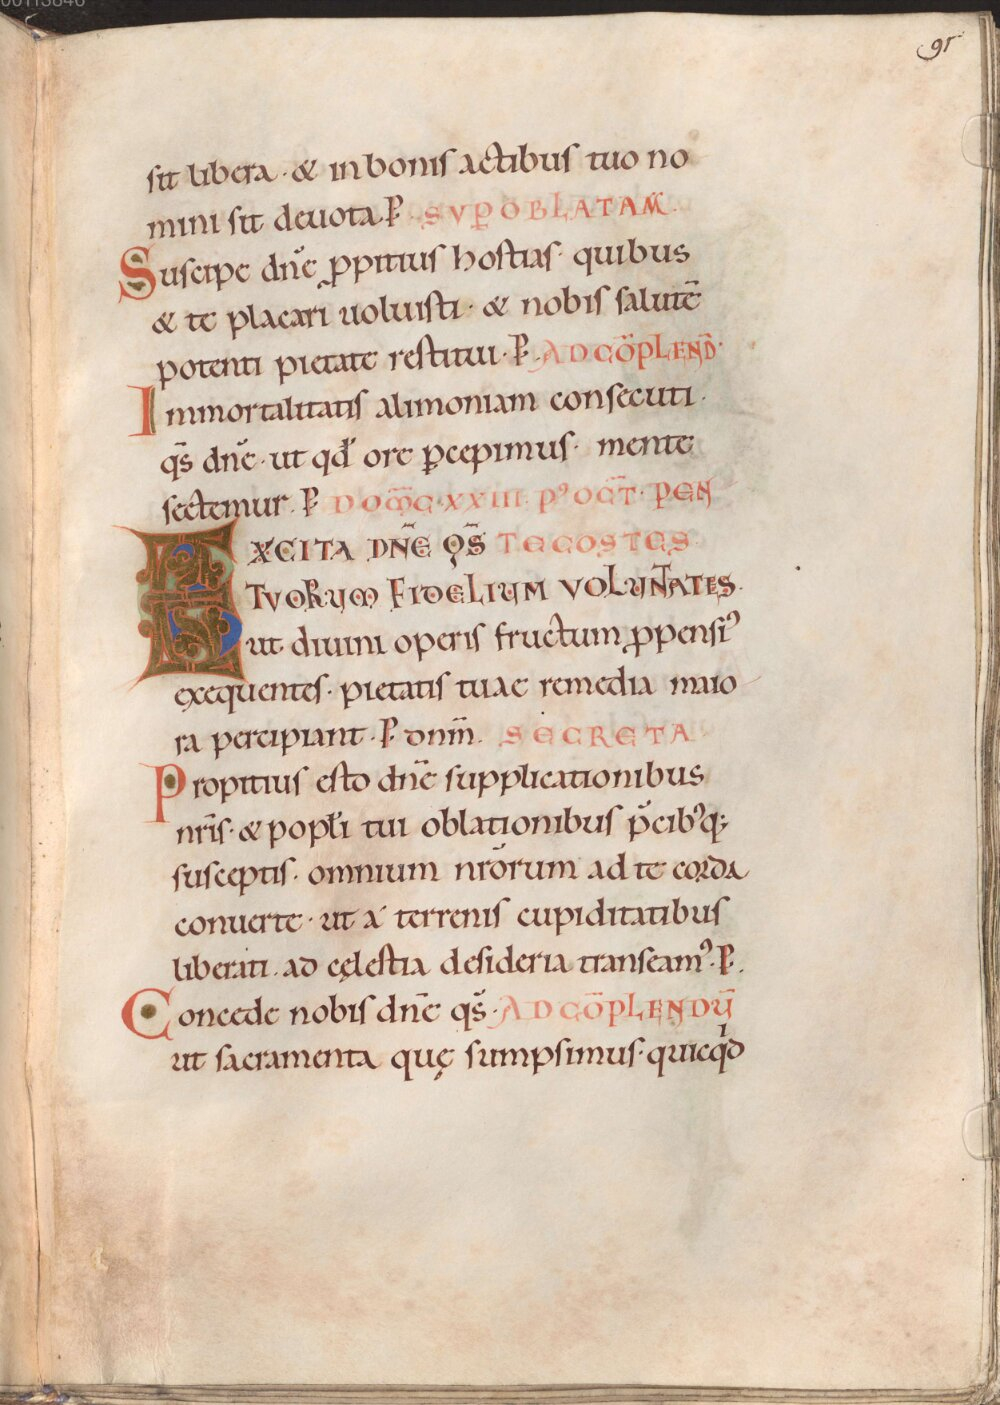 91
sit libera · & in bonis actibus tuo no
mini sit deuota. P̄ · SVP̱ OBLATAM̄.
Suscipe dn̄e ꝓpitius hostias · quibus
& te placari uoluisti · & nobis salutē
potenti pietate restitui · P̄. AD CŌPLEND̄·
Inmortalitatis alimoniam consecuti ·
qs̄ dn̄e · ut qd̄ ore ꝑcepimus · mente
sectemur. P̄ DOM̄C · XXIII · Pꝰ OCT̄ · PEN
EXCITA DN̄E QS̄ TECOSTES
TVORUM FIDELIUM VOLUNTATES·
ut diuini operis fructum ꝓpensiꝰ
exequentes · pietatis tuae remedia maio
ra percipiant · P̄ dnm̄. SECRETA
Propitius esto dn̄e supplicationibus
nr̄is · & popłi tui oblationibus p̄cibꝰq;
susceptis · omnium nr̄orum ad te corda
conuerte · ut a terrenis cupiditatibus
liberati · ad cęlestia desideria transeamꝰ · P̄.
Concede nobis dn̄e qs̄ · AD CŌPLENDŪ
ut sacramenta quę sumpsimus · quicqͥd